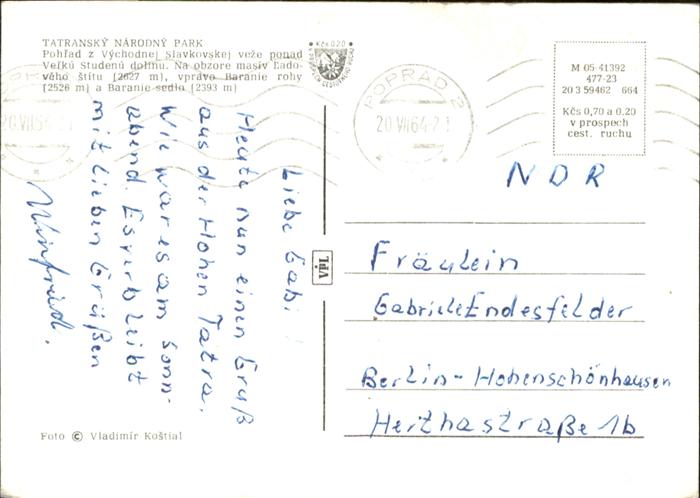 TATRANSKÝ NÁRODNÝ PARK
Pohľad z Východnej Slavkovskej veže ponad
Veľkú Studenú dolinu. Na obzore masív Ľado-
vého štítu (2627 m), vpravo Baranie rohy
(2526 m) a Baranie sedlo (2393 m)
Kčs 0,20
POPRAD 2
20.VII.64-21
M 05-41392
477-23
20 3 59462 664
Kčs 0,70 a 0.20
v prospech
cest. ruchu
Liebe Gabi!
Heute nun einen Gruß
aus der Hohen Tatra.
Wie war es am Sonn-
abend. Es verbleibt
mit lieben Grüßen
Winfried.
VpL
NDR
Fräulein
Gabriele Endesfelder
Berlin-Hohenschönhausen
Herthastraße 1b
Foto © Vladimír Koštial